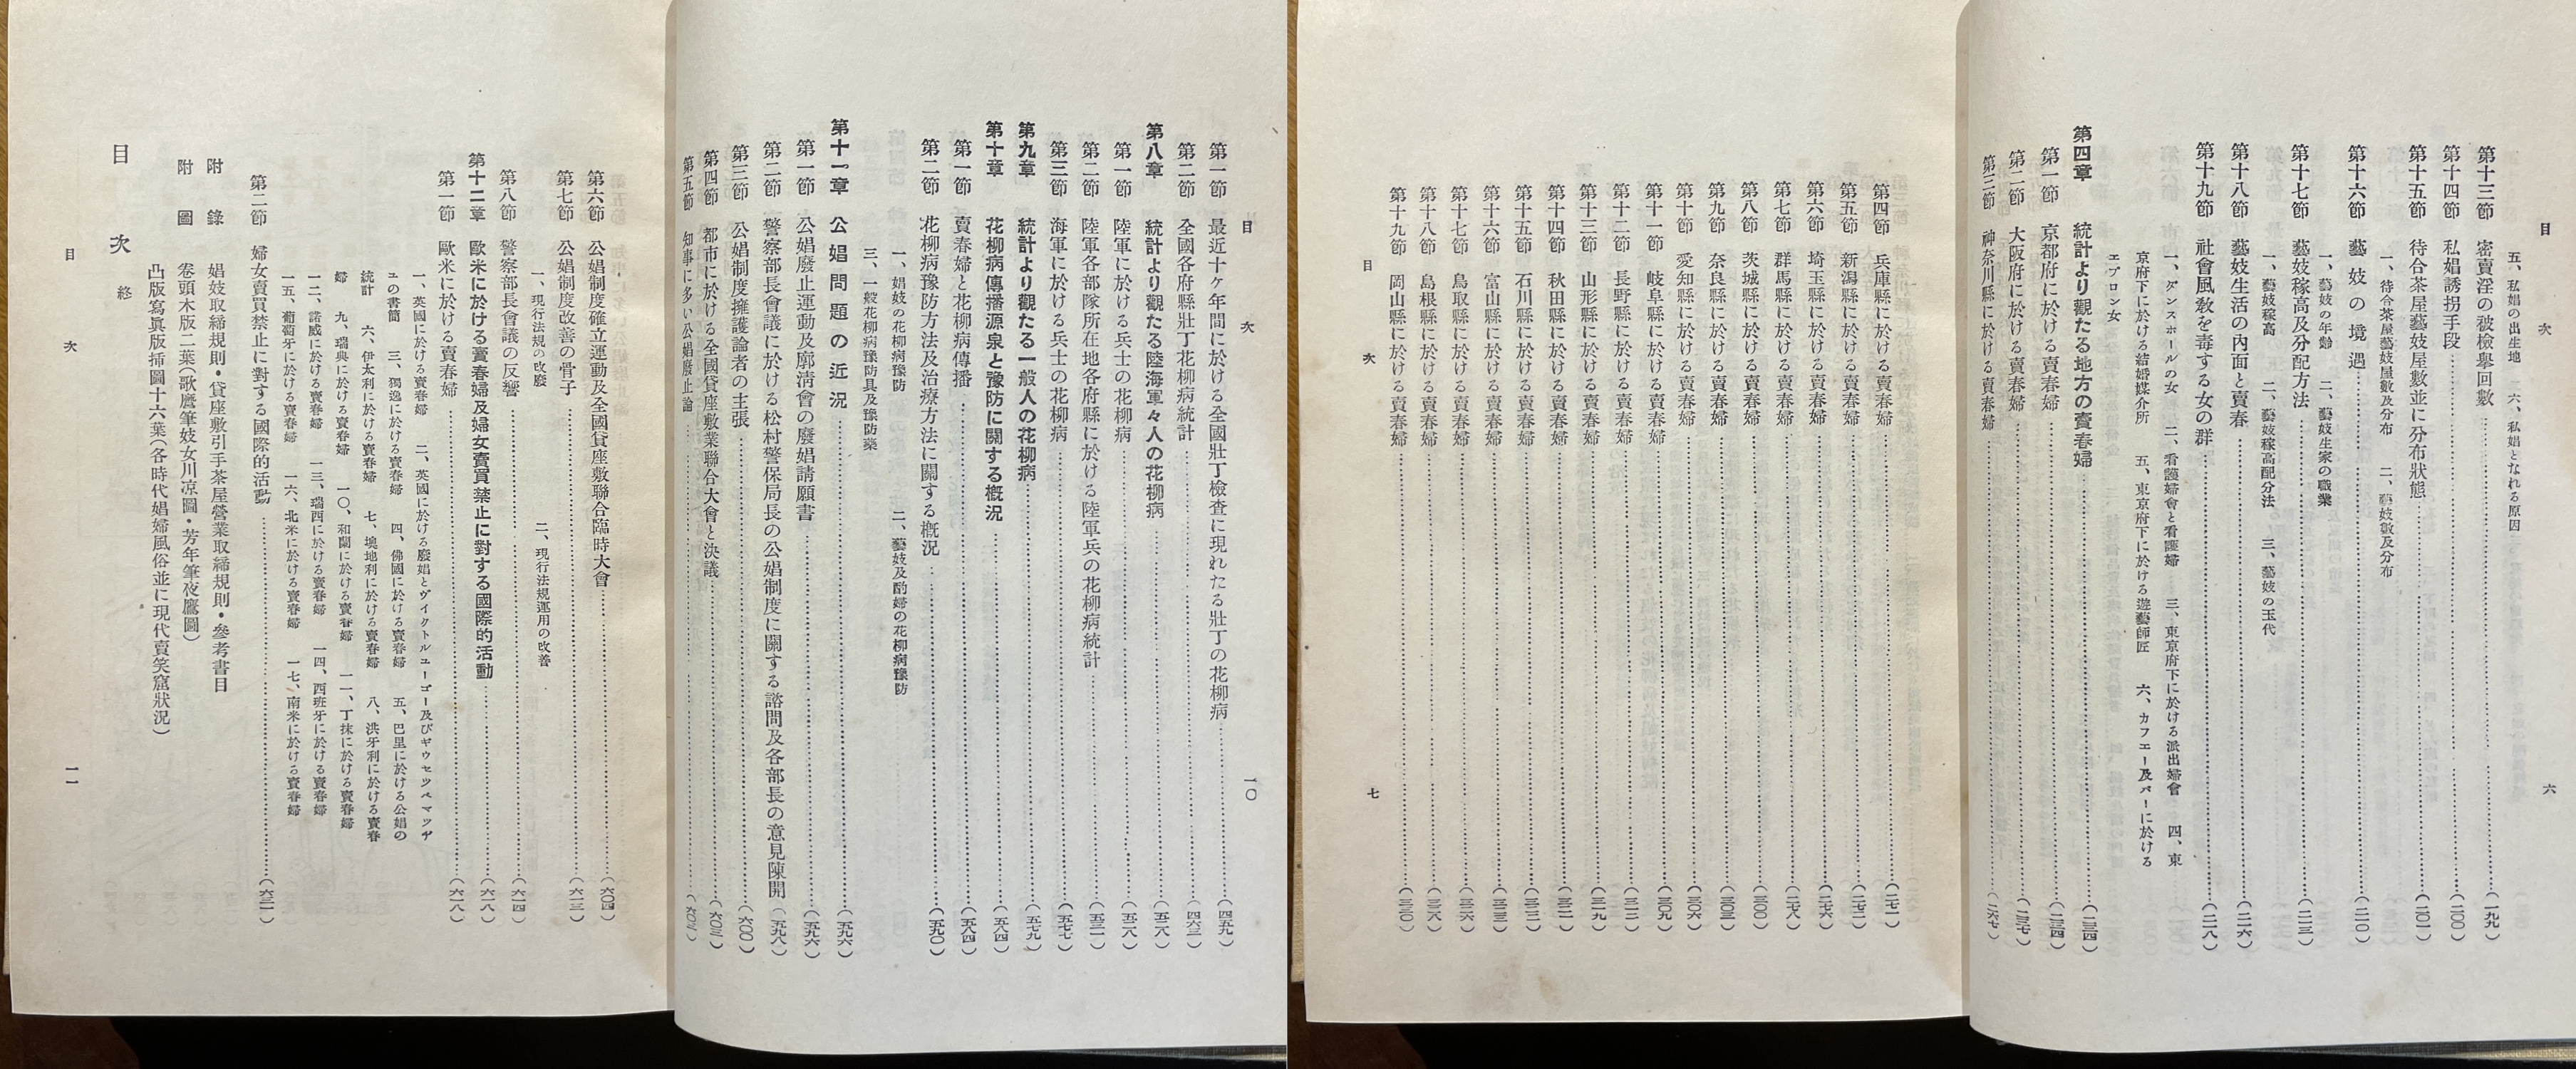 目次
六
五、私娼の出生地　六、私娼となれる原因
第十三節　密賣淫の被檢擧回數……(一九九)
第十四節　私娼誘拐手段……(二〇〇)
第十五節　待合茶屋藝妓屋數並に分布狀態……(二〇一)
一、待合茶屋藝妓屋數及分布　二、藝妓數及分布
第十六節　藝妓の境遇……(二一〇)
一、藝妓の年齡　二、藝妓生家の職業
第十七節　藝妓稼高及分配方法……(二一三)
一、藝妓稼高　二、藝妓稼高配分法　三、藝妓の玉代
第十八節　藝妓生活の內面と賣春……(二一六)
第十九節　社會風敎を毒する女の群……(二一八)
一、ダンスホールの女　二、看護婦會と看護婦　三、東京府下に於ける派出婦會　四、東
京府下に於ける結婚媒介所　五、東京府下に於ける遊藝師匠　六、カフエー及バーに於ける
エプロン女
第四章　統計より觀たる地方の賣春婦……(二三四)
第一節　京都府に於ける賣春婦……(二三四)
第二節　大阪府に於ける賣春婦……(二三七)
第三節　神奈川縣に於ける賣春婦……(二六七)
第四節　兵庫縣に於ける賣春婦……(二七一)
第五節　新潟縣に於ける賣春婦……(二七二)
第六節　埼玉縣に於ける賣春婦……(二七六)
第七節　群馬縣に於ける賣春婦……(二七八)
第八節　茨城縣に於ける賣春婦……(三〇〇)
第九節　奈良縣に於ける賣春婦……(三〇三)
第十節　愛知縣に於ける賣春婦……(三〇六)
第十一節　岐阜縣に於ける賣春婦……(三〇九)
第十二節　長野縣に於ける賣春婦……(三一二)
第十三節　山形縣に於ける賣春婦……(三一九)
第十四節　秋田縣に於ける賣春婦……(三二一)
第十五節　石川縣に於ける賣春婦……(三二二)
第十六節　富山縣に於ける賣春婦……(三二三)
第十七節　鳥取縣に於ける賣春婦……(三二六)
第十八節　島根縣に於ける賣春婦……(三二八)
第十九節　岡山縣に於ける賣春婦……(三三〇)
目次
七
目次
一〇
第一節　最近十ヶ年間に於ける全國壯丁檢査に現れたる壯丁の花柳病……(四五九)
第二節　全國各府縣壯丁花柳病統計……(四六三)
第八章　統計より觀たる陸海軍々人の花柳病……(五二八)
第一節　陸軍に於ける兵士の花柳病……(五二八)
第二節　陸軍各部隊所在地各府縣に於ける陸軍兵の花柳病統計……(五三一)
第三節　海軍に於ける兵士の花柳病……(五七七)
第九章　統計より觀たる一般人の花柳病……(五七九)
第十章　花柳病傳播源泉と豫防に關する槪況……(五八四)
第一節　賣春婦と花柳病傳播……(五八四)
第二節　花柳病豫防方法及治療方法に關する槪況……(五九〇)
一、娼妓の花柳病豫防　二、藝妓及酌婦の花柳病豫防
三、一般花柳病豫防具及豫防藥
第十一章　公娼問題の近況……(五九六)
第一節　公娼廢止運動及廓淸會の廢娼請願書……(五九六)
第二節　警察部長會議に於ける松村警保局長の公娼制度に關する諮問及各部長の意見陳開(五九八)
第三節　公娼制度擁護論者の主張……(六〇〇)
第四節　都市に於ける全國貸座敷業聯合大會と決議……(六〇三)
第五節　知事に多い公娼廢止論……(六〇三)
第六節　公娼制度確立運動及全國貸座敷聯合臨時大會……(六〇四)
第七節　公娼制度改善の骨子……(六一三)
一、現行法規の改廢　二、現行法規運用の改善
第八節　警察部長會議の反響……(六一四)
第十二章　歐米に於ける賣春婦及婦女賣買禁止に對する國際的活動……(六一八)
第一節　歐米に於ける賣春婦……(六一八)
一、英國に於ける賣春婦　二、英國に於ける廢娼とヴイクトルユーゴー及びギウセツペマツヂ
エの書簡　三、獨逸に於ける賣春婦　四、佛國に於ける賣春婦　五、巴里に於ける公娼の
統計　六、伊太利に於ける賣春婦　七、墺地利に於ける賣春婦　八、洪牙利に於ける賣春
婦　九、瑞典に於ける賣春婦　一〇、和蘭に於ける賣春婦　一一、丁抹に於ける賣春婦
一二、諾威に於ける賣春婦　一三、瑞西に於ける賣春婦　一四、西班牙に於ける賣春婦
一五、葡萄牙に於ける賣春婦　一六、北米に於ける賣春婦　一七、南米に於ける賣春婦
第二節　婦女賣買禁止に對する國際的活動……(六三一)
附錄　娼妓取締規則・貸座敷引手茶屋營業取締規則・參考書目
附圖　卷頭木版二葉(歌麿筆妓女川凉圖・芳年筆夜鷹圖)
凸版寫眞版揷圖十六葉(各時代娼婦風俗並に現代賣笑窟狀況)
目次　終
目次
一一